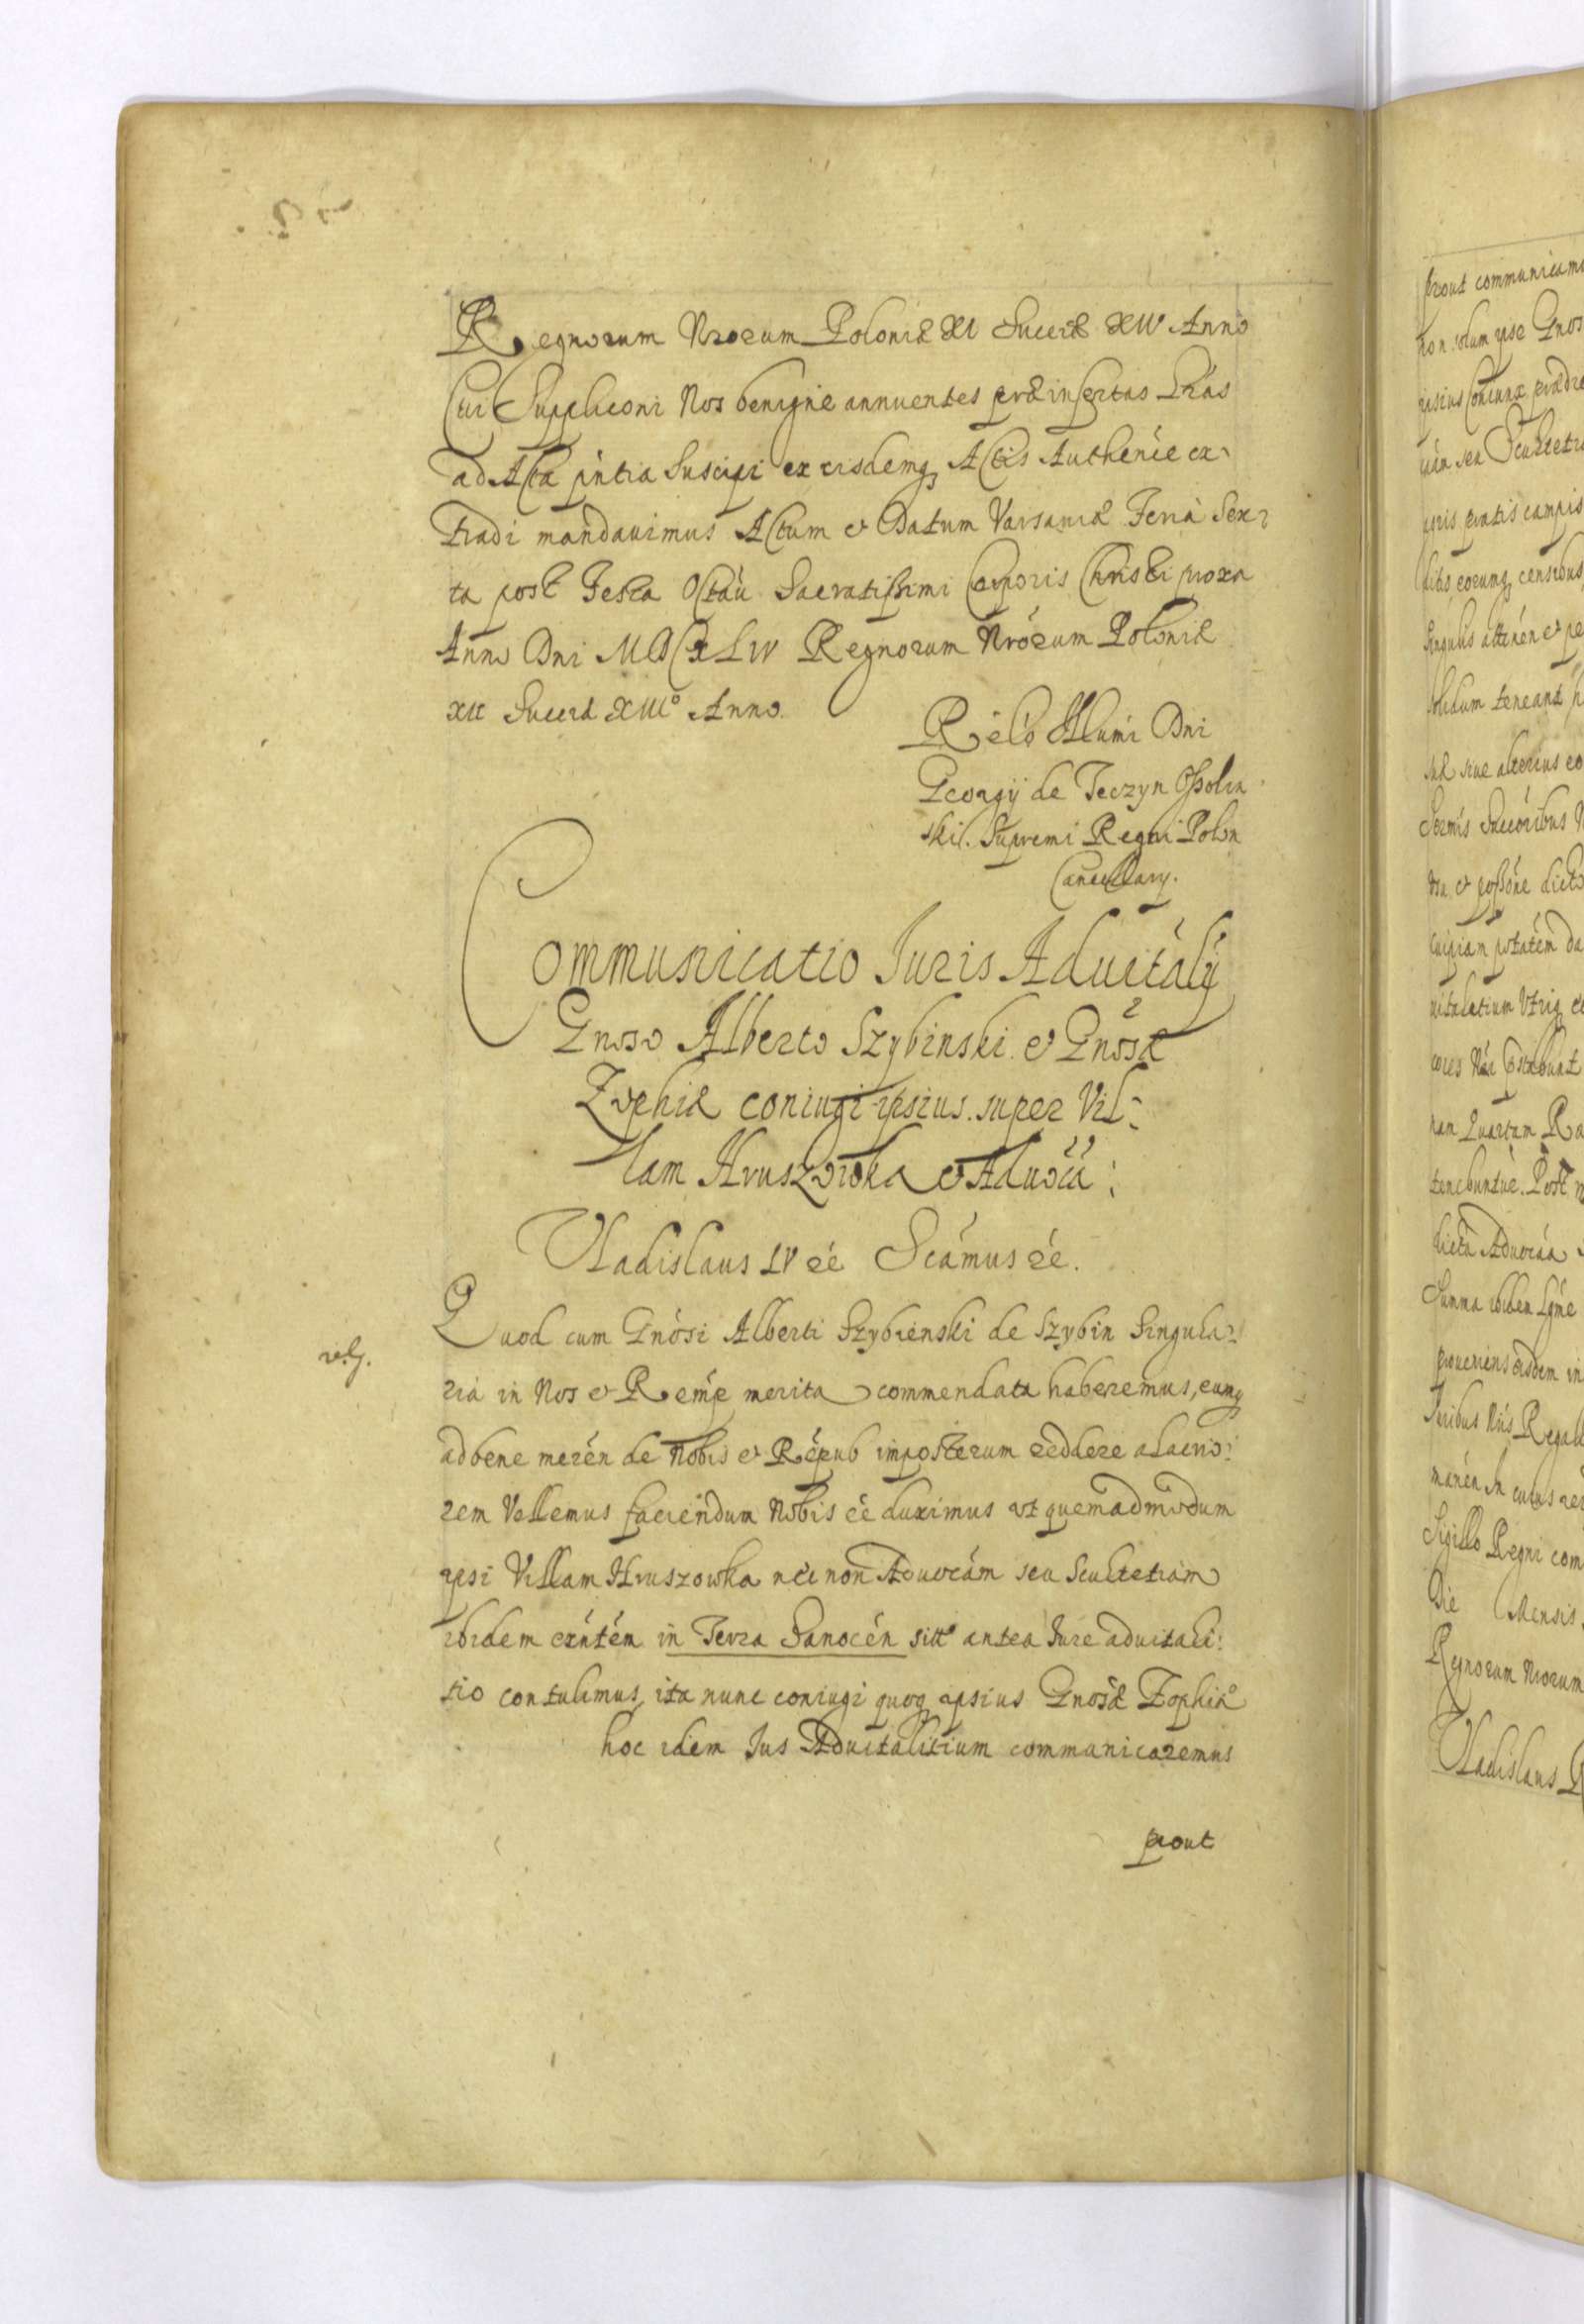 Regnorum Nrorum Poloniæ XI Sueciæ XIII Anno
Cui Supplicõni Nos benigne annuentes præinsertas Lrás
ad Acta pńtia Suscipi ex eisdemq Actis Authenće ex-
tradi mandavimus Actum et Datum Varsaviæ Feria Sex-
ta post Festa Octáu Sacratissimi Corporis Christi proxa
Anno Dni MDCXLIV Regnorum Nrórum Poloniæ
XII Sueciæ XIIIo Anno.
Rélò Illumi Dni
Georgij de Teczyn Ossolin
skil. Supremi Regni Polon
Cancellary.
Communicatio Iuris Aduitálij
Gnoso Alberto Szybinski et Gnósæ
Zophiæ coniugi ipsius super Vil-
lam Hruszowka et Aduócá:
Vladislaus IV ec Scámus ec.
Quod cum Gnósi Alberti Szybienski de Szybin Singula-
ria in Nos et Remp merita commendata haberemus, eumq
ad bene merén de Nobis et Répub imposterum reddere alacrio-
rem Vellemus faciendum Nobis ée duximus ut quemadmodum
ipsi Villam Hruszowka nec non Aduocám seu Scultetiam
ibidem exńtém in Terra Sanocén sitto antea Iure aduitali-
tio contulimus, ita nunc coniugi quoq ipsius Gnosæ Zophiæ
hoc idem Ius Aduitalitium communicaremus
prout
prout communicamu
non solum ipse Gnos
ipsius Coniunx prædic
uán seu Scultetia
agris pratis campis
ditis, eorumq censibus
singulis attinén et pe
solidum teneant
suæ siue alterius eo
Sermis Succóribus N
usu et possóne dicto
cuipiam potatém da
uitalitium Utriq
tenebuntur. Post
dicta Aduocáa
Summa
proueniens eisdem in
Iuribus Nris Regali
manén In cuius rei
Sigillo Regni com
Die Mensis
Regnorum Nrorum
Vladislaus R